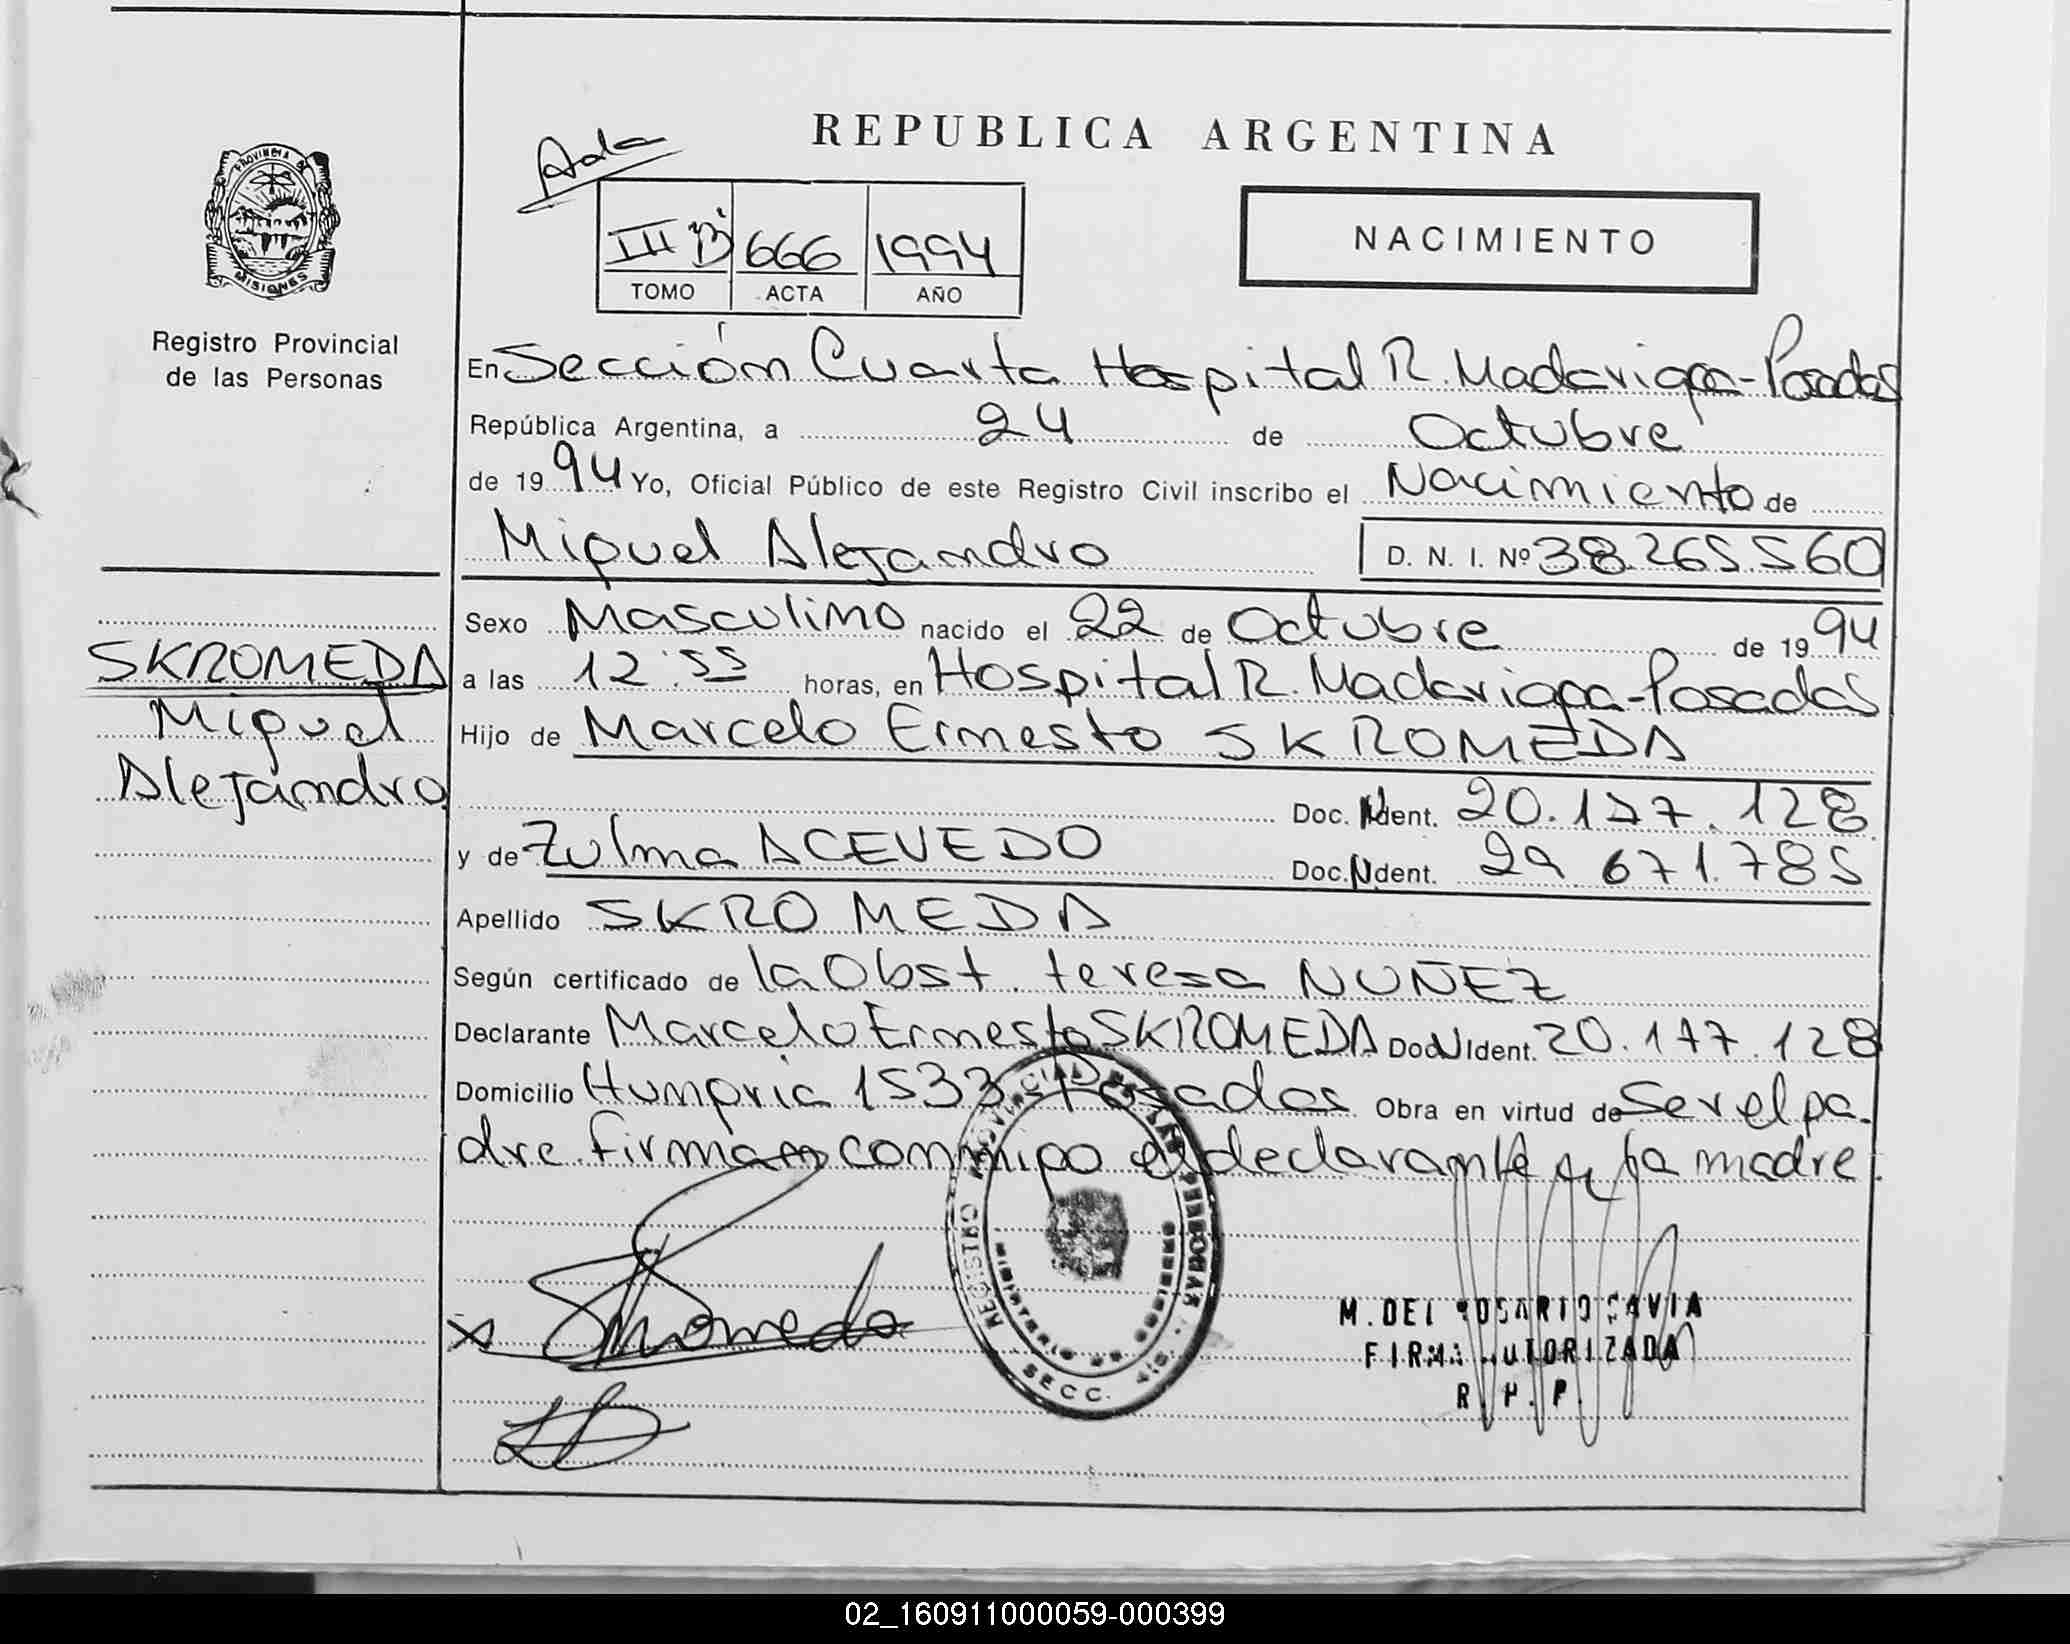 REPUBLICA ARGENTINA
Ada
III B 666 1994
TOMO ACTA AÑO
NACIMIENTO
PROVINCIA DE MISIONES
Registro Provincial
de las Personas
En Sección Cuarta Hospital R. Madariaga-Posadas
República Argentina, a 24 de Octubre
de 1994 Yo, Oficial Público de este Registro Civil inscribo el Nacimiento de
Miguel Alejandro D. N. I. Nº 38.265.560
Sexo Masculino nacido el 22 de Octubre de 1994
a las 12:55 horas, en Hospital R. Madariaga-Posadas
Hijo de Marcelo Ernesto SKROMEDA
Doc. Ident. 20.177.128
y de Zulma ACEVEDO Doc. Ident. 29.671.785
Apellido SKROMEDA
Según certificado de la Obst. teresa NUÑEZ
Declarante Marcelo Ernesto SKROMEDA Doc. Ident. 20.177.128
Domicilio Humgria 1533-Posadas Obra en virtud de Ser el pa-
dre firman conmigo el declarante y la madre.
SKROMEDA
Miguel
Alejandro
Skromeda
REGISTRO PROVINCIAL DE LAS PERSONAS
MINISTERIO DE GOBIERNO
SECC. 4
M. DEL ROSARIO SAVIA
FIRMA AUTORIZADA
R. P. P.
02_160911000059-000399